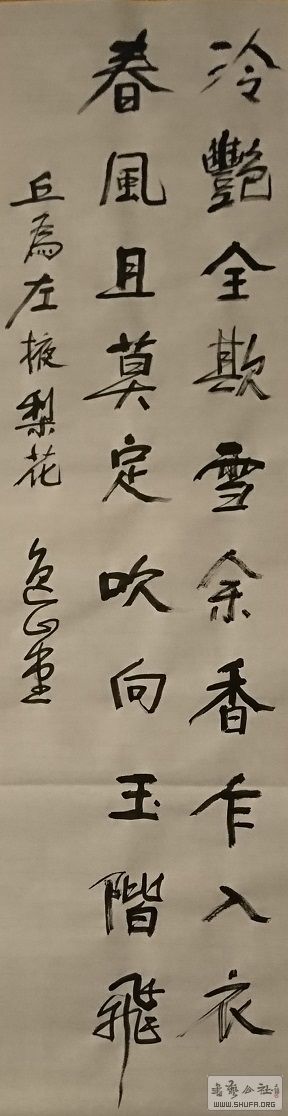 冷艷全欺雪余香乍入衣
春風且莫定吹向玉階飛
丘為左掖梨花
WWW.SHUFA.ORG